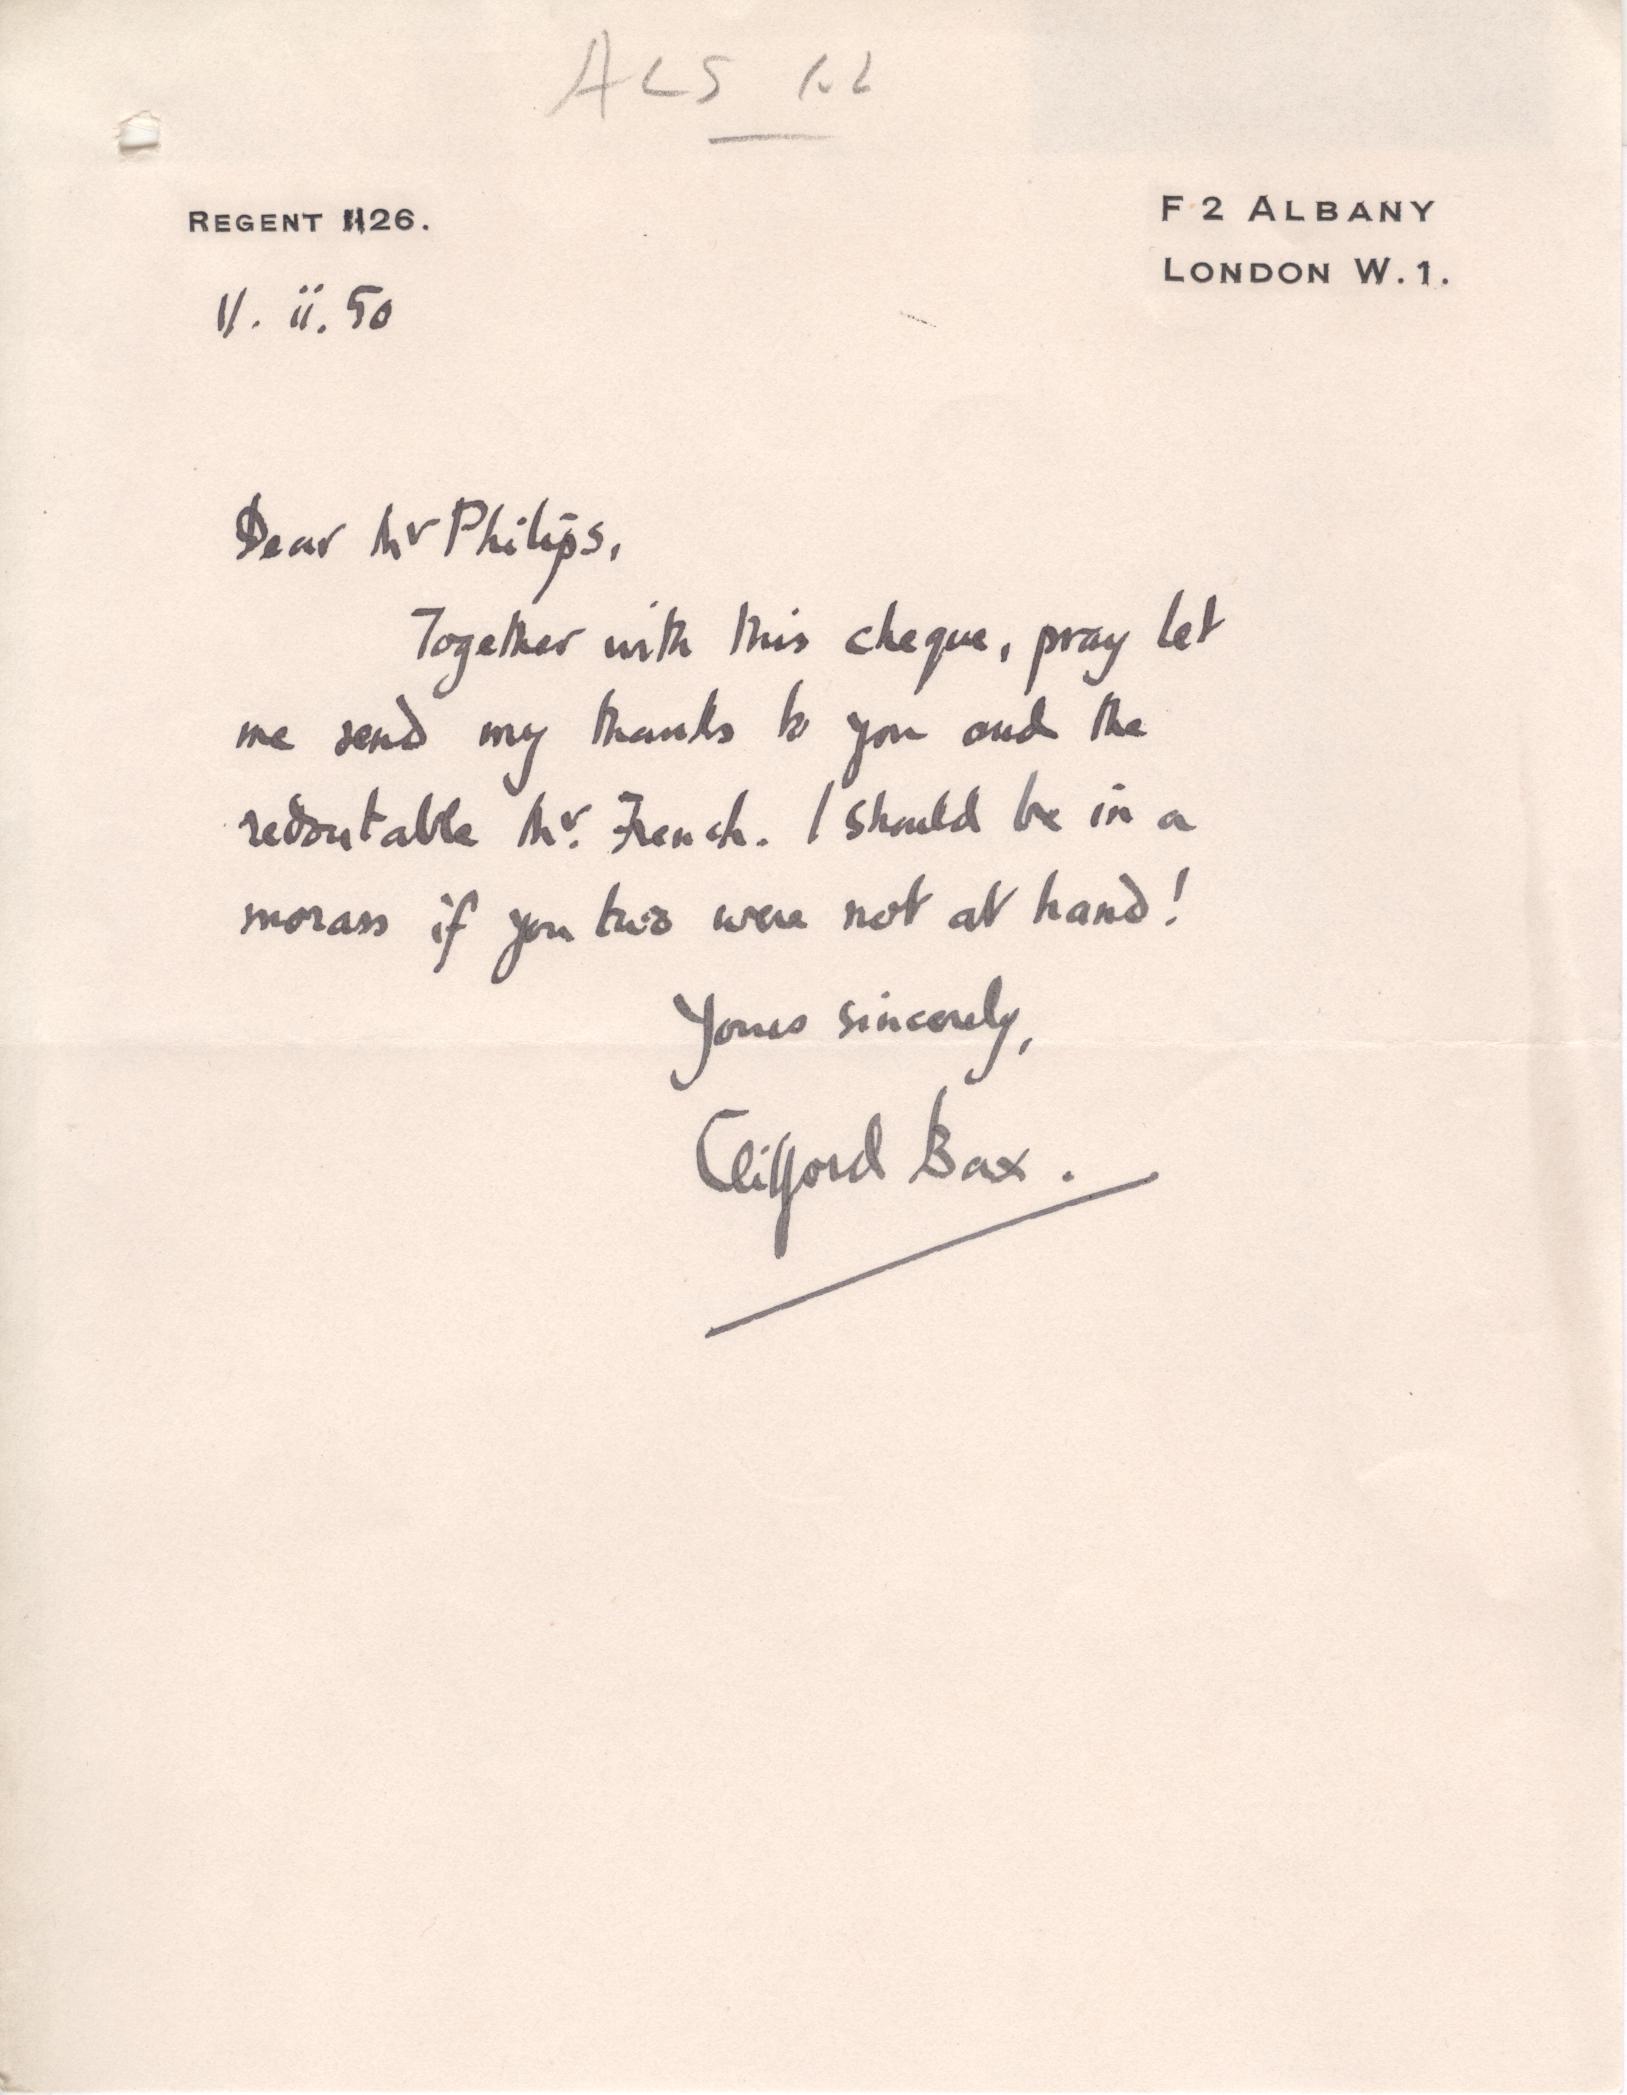 ALS
REGENT 1126.
F 2 ALBANY
LONDON W.1.
11. ii. 50
Dear Mr Philips,
Together with this cheque, pray let
me send my thanks to you and the
redoutable Mr. French. I should be in a
morass if you two were not at hand!
Yours sincerely,
Clifford Bax.